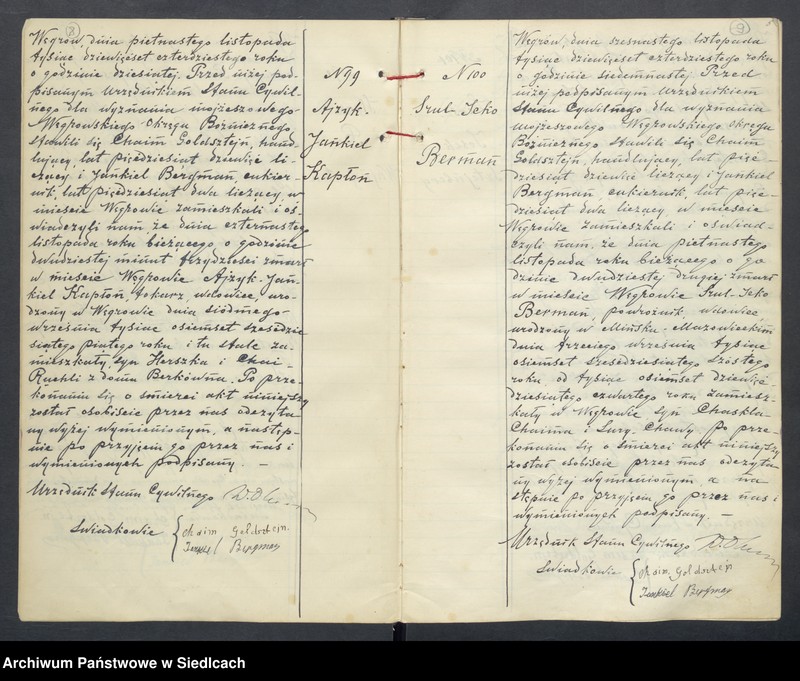 8
Węgrów, dnia piętnastego listopada
tysiąc dziewięćset czterdziestego roku
o godzinie dziesiątej. Przed niżej pod-
pisanym Urzędnikiem Stanu Cywil-
nego dla wyznania mojżeszowego
Węgrowskiego Okręgu Bożniczego
stawili się Chaim Goldsztejn, hand-
lujący, lat pięćdziesiąt dziewięć li-
czący i Jankiel Bergman, cukier-
nik, lat pięćdziesiąt dwa liczący, w
mieście Węgrowie zamieszkali i oś-
wiadczyli nam, że dnia czternastego
listopada roku bieżącego, o godzinie
dwudziestej minut trzydzieści zmarł
w mieście Węgrowie Ajzyk-Jan-
kiel Kapłon, tokarz, wdowiec, uro-
dzony w Węgrowie dnia siódmego
września tysiąc osiemset sześćdzie-
siątego piątego roku i tu stale za-
mieszkały, syn Herszka i Chai-
Ruchli z domu Berkówna. Po prze-
konaniu się o śmierci akt niniejszy
został osobiście przez nas odczyta-
ny wyżej wymienionym, a następ-
nie po przyjęciu go przez nas i
wymienionych podpisany. —
Urzędnik Stanu Cywilnego
Świadkowie { Chaim Goldsztein.
Jankiel Bergman
N 99
Ajzyk-
Jankiel
Kapłon
N 100
Szul-Icko
Berman
9
Węgrów, dnia szesnastego listopada
tysiąc dziewięćset czterdziestego roku
o godzinie siedemnastej. Przed
niżej podpisanym Urzędnikiem
Stanu Cywilnego dla wyznania
mojżeszowego Węgrowskiego Okręgu
Bożniczego stawili się Chaim
Goldsztejn, handlujący, lat pięć-
dziesiąt dziewięć liczący i Jankiel
Bergman, cukiernik, lat pięć-
dziesiąt dwa liczący, w mieście
Węgrowie zamieszkali i oświad-
czyli nam, że dnia piętnastego
listopada roku bieżącego o go
dzinie dwudziestej drugiej zmarł
w mieście Węgrowie Szul-Icko
Berman, powroźnik, wdowiec,
urodzony w Mińsku-Mazowieckim
dnia trzeciego września tysiąc
osiemset sześćdziesiątego szóstego
roku, od tysiąc osiemset dziewięć-
dziesiątego czwartego roku zamiesz-
kały w Węgrowie syn Chaskla-
Chaima i Sury-Chawy. Po prze-
konaniu się o śmierci akt niniejszy
został osobiście przez nas odczyta-
ny wyżej wymienionym, a na
stępnie po przyjęciu go przez nas i
wymienionych podpisany. —
Urzędnik Stanu Cywilnego
Świadkowie { Chaim Goldsztein
Jankiel Bergman
Archiwum Państwowe w Siedlcach